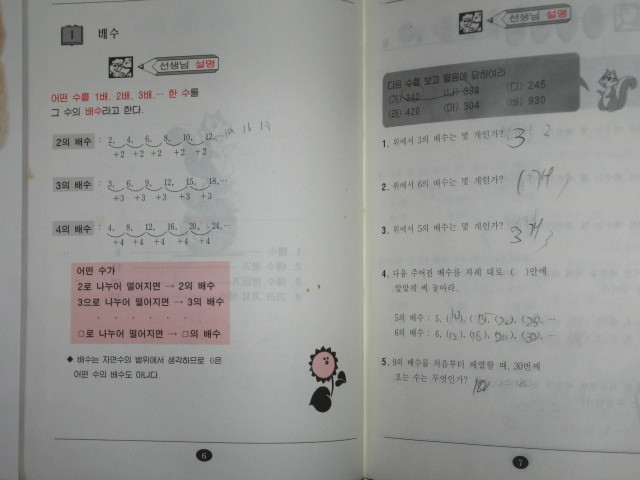 1 배수
선생님 설명
어떤 수를 1배, 2배, 3배, … 한 수를
그 수의 배수라고 한다.
2의 배수 : 2, 4, 6, 8, 10, 12, …
+2 +2 +2 +2 +2
3의 배수 : 3, 6, 9, 12, 15, 18, …
+3 +3 +3 +3 +3
4의 배수 : 4, 8, 12, 16, 20, 24, …
+4 +4 +4 +4 +4
어떤 수가
2로 나누어 떨어지면 → 2의 배수
3으로 나누어 떨어지면 → 3의 배수
· · · · · ·
□로 나누어 떨어지면 → □의 배수
◆ 배수는 자연수의 범위에서 생각하므로 0은
어떤 수의 배수도 아니다.
6
선생님 설명
다음 수를 보고 물음에 답하여라
(가) 342 (나) (다) 245
(라) 420 (마) 304 (바) 930
1. 위에서 3의 배수는 몇 개인가? 3
2. 위에서 6의 배수는 몇 개인가?
3. 위에서 5의 배수는 몇 개인가? 3개
4. 다음 주어진 배수를 차례 대로 ( )안에
알맞게 써 놓아라.
5의 배수 : 5, (10), (15), (20), (25), …
6의 배수 : 6, (12), (18), (24), (30), …
5. 9의 배수를 처음부터 배열할 때, 30번째
오는 수는 무엇인가?
7